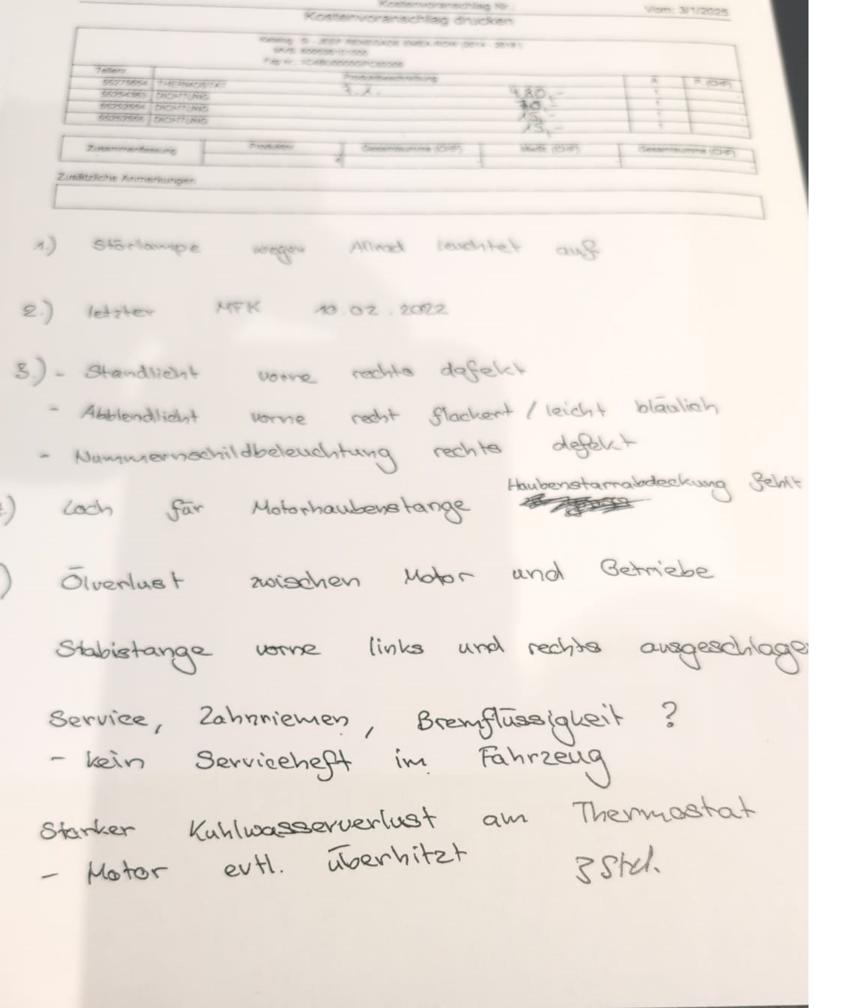 Kostenvoranschlag Nr.
Vom: 3/1/2025
Kostenvoranschlag drucken
THERMOSTAT
180.-
DICHTUNG
30.-
DICHTUNG
15.-
DICHTUNG
15.-
Zusammenfassung Gesamtsumme (CHF) MwSt (CHF) Gesamtsumme (CHF)
Zusätzliche Anmerkungen
1.) Störlampe wegen Allrad leuchtet auf
2.) letzter MFK 10.02.2022
3.) - Standlicht vorne rechts defekt
- Abblendlicht vorne recht flackert / leicht bläulich
- Nummernschildbeleuchtung rechts defekt
Haubenstarrabdeckung fehlt
) Loch für Motorhaubenstange
) Ölverlust zwischen Motor und Getriebe
Stabistange vorne links und rechts ausgeschlage
Service, Zahnriemen, Bremflüssigkeit ?
- kein Serviceheft im Fahrzeug
Starker Kuhlwasserverlust am Thermostat
- Motor evtl. überhitzt 3 Std.